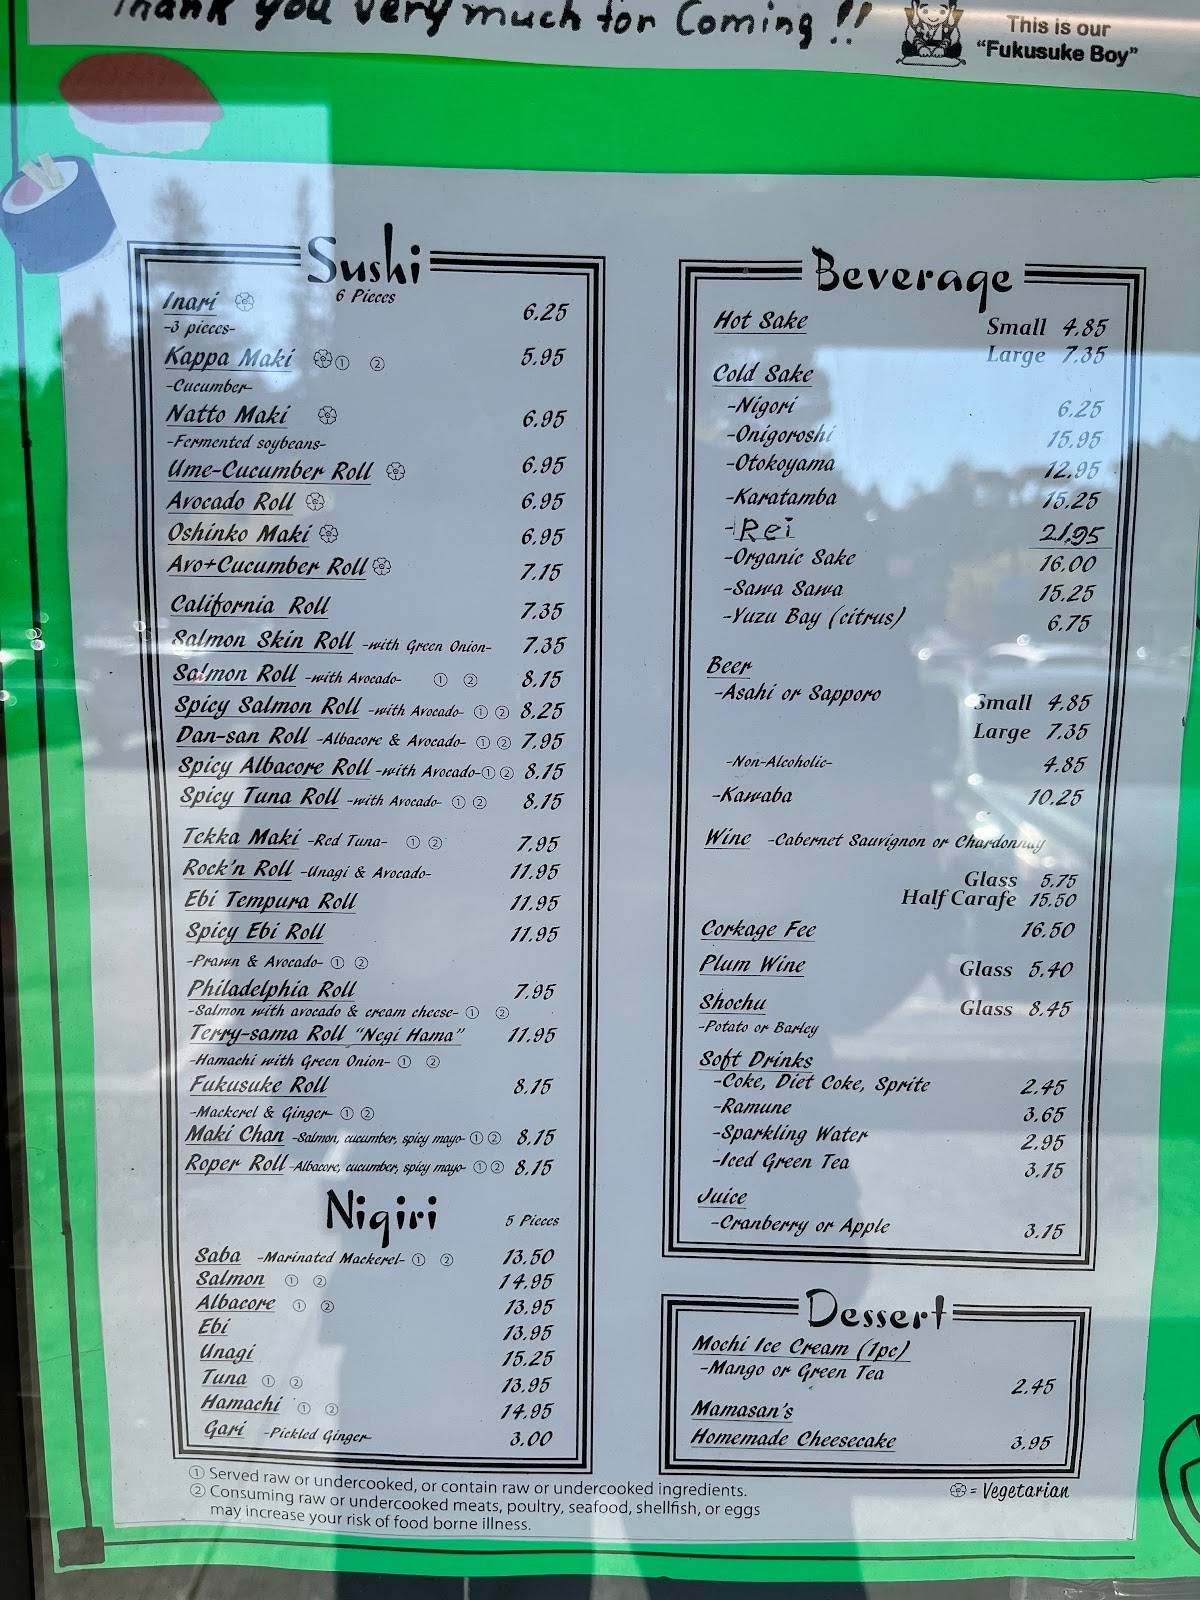 Thank you very much for Coming !!
This is our
"Fukusuke Boy"
Sushi
6 Pieces
Inari 6.25
-3 pieces-
Kappa Maki ① ② 5.95
-Cucumber-
Natto Maki 6.95
-Fermented soybeans-
Ume-Cucumber Roll 6.95
Avocado Roll 6.95
Oshinko Maki 6.95
Avo+Cucumber Roll 7.15
California Roll 7.35
Salmon Skin Roll -with Green Onion- 7.35
Salmon Roll -with Avocado- ① ② 8.15
Spicy Salmon Roll -with Avocado- ① ② 8.25
Dan-san Roll -Albacore & Avocado- ① ② 7.95
Spicy Albacore Roll -with Avocado- ① ② 8.15
Spicy Tuna Roll -with Avocado- ① ② 8.15
Tekka Maki -Red Tuna- ① ② 7.95
Rock'n Roll -Unagi & Avocado- 11.95
Ebi Tempura Roll 11.95
Spicy Ebi Roll 11.95
-Prawn & Avocado- ① ②
Philadelphia Roll 7.95
-Salmon with avocado & cream cheese- ① ②
Terry-sama Roll "Negi Hama" 11.95
-Hamachi with Green Onion- ① ②
Fukusuke Roll 8.15
-Mackerel & Ginger- ① ②
Maki Chan -Salmon, cucumber, spicy mayo- ① ② 8.15
Roper Roll -Albacore, cucumber, spicy mayo- ① ② 8.15
Nigiri 5 Pieces
Saba -Marinated Mackerel- ① ② 13.50
Salmon ① ② 14.95
Albacore ① ② 13.95
Ebi 13.95
Unagi 15.25
Tuna ① ② 13.95
Hamachi ① ② 14.95
Gari -Pickled Ginger- 3.00
① Served raw or undercooked, or contain raw or undercooked ingredients.
② Consuming raw or undercooked meats, poultry, seafood, shellfish, or eggs
may increase your risk of food borne illness.
Beverage
Hot Sake Small 4.85
Large 7.35
Cold Sake
-Nigori 6.25
-Onigoroshi 15.95
-Otokoyama 12.95
-Karatamba 15.25
-Rei 21.95
-Organic Sake 16.00
-Sawa Sawa 15.25
-Yuzu Bay (citrus) 6.75
Beer
-Asahi or Sapporo Small 4.85
Large 7.35
-Non-Alcoholic- 4.85
-Kawaba 10.25
Wine -Cabernet Sauvignon or Chardonnay
Glass 5.75
Half Carafe 15.50
Corkage Fee 16.50
Plum Wine Glass 5.40
Shochu Glass 8.45
-Potato or Barley
Soft Drinks
-Coke, Diet Coke, Sprite 2.45
-Ramune 3.65
-Sparkling Water 2.95
-Iced Green Tea 3.15
Juice
-Cranberry or Apple 3.15
Dessert
Mochi Ice Cream (1pc)
-Mango or Green Tea 2.45
Mamasan's
Homemade Cheesecake 3.95
= Vegetarian